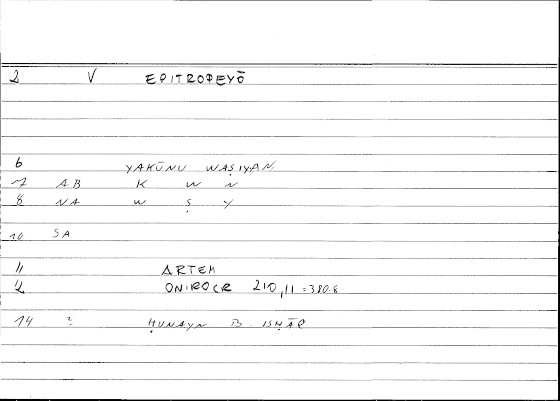 2 V EPITROPEYŌ
6 YAKŪNU WAṢIYAN
7 AB K W N
8 NA W Ṣ Y
10 SA
11 ARTEM
12 ONIROCR 210,11=380.8
14 ? ḤUNAYN B. ISḤĀQ